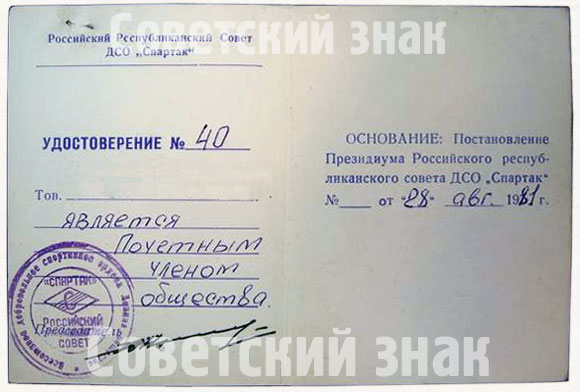 Советский знак
Российский Республиканский Совет
ДСО „Спартак“
УДОСТОВЕРЕНИЕ № 40
Тов.
является
Почетным
членом
общества.
Председатель
Всесоюзное добровольное спортивное ордена Ленина
«СПАРТАК»
РОССИЙСКИЙ
СОВЕТ
ОСНОВАНИЕ: Постановление
Президиума Российского респуб-
ликанского совета ДСО „Спартак“
№ от "28" авг. 1981 г.
Советский знак